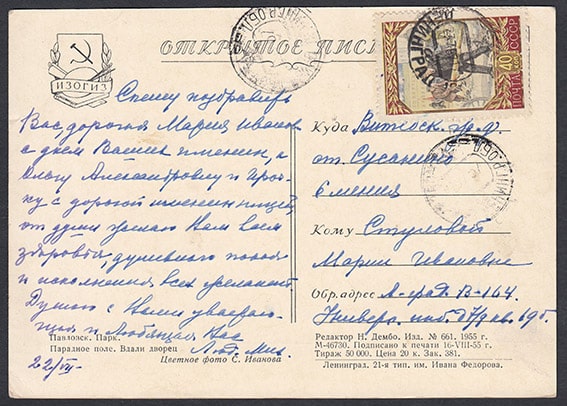 ИЗОГИЗ
ОТКРЫТОЕ ПИС
ПОЧТА СССР
40
Спешу поздравить
Вас, дорогая Мария Иванов.
с днем Ваших именин, а
Ольгу Александровну и
с дорогой именинницей,
от души желаю Вам всем
здоровья, душевного покоя
и исполнения всех желаний
Душою с Вами уважаю-
щая и любящая Вас
Люд. Мих.
22/VII
Куда Витебск. ж. д.
ст. Сусанино
6 линия
Кому Ступовой
Марии Ивановне
Обр. адрес Л-град В-164
Универс. наб.
Павловск. Парк.
Парадное поле. Вдали дворец
Цветное фото С. Иванова
Редактор Н. Дембо. Изд. № 661. 1955 г.
М-46730. Подписано к печати 16-VIII-55 г.
Тираж 50 000. Цена 20 к. Зак. 381.
Ленинград. 21-я тип. им. Ивана Федорова.